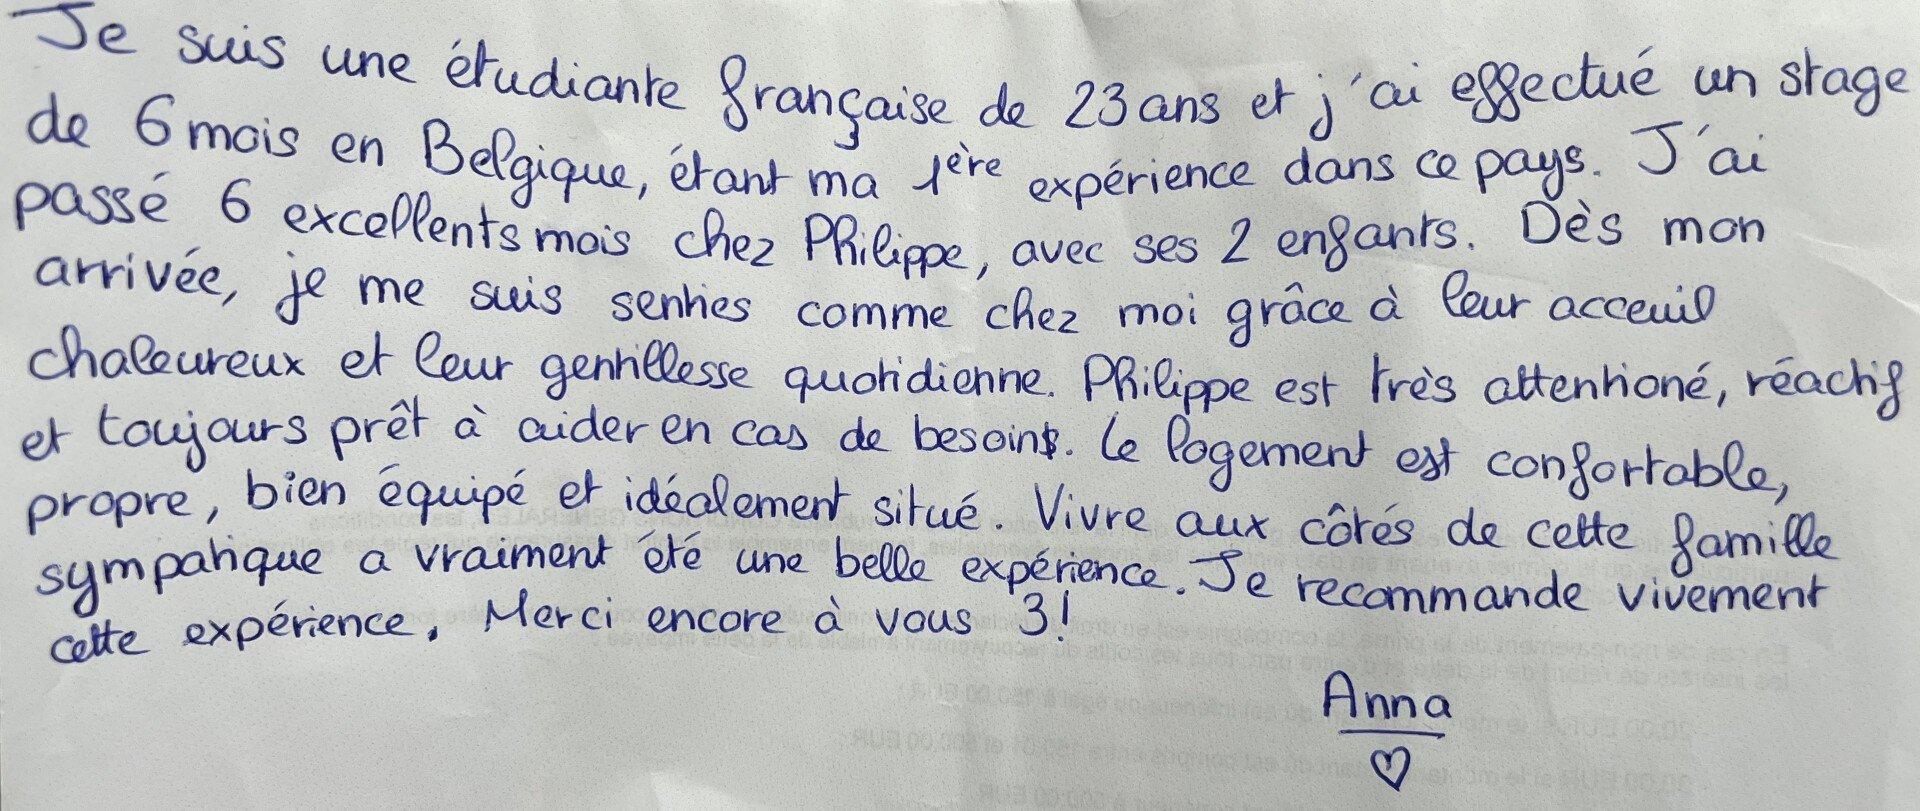 Je suis une étudiante française de 23 ans et j'ai effectué un stage
de 6 mois en Belgique, étant ma 1ère expérience dans ce pays. J'ai
passé 6 excellents mois chez Philippe, avec ses 2 enfants. Dès mon
arrivée, je me suis senties comme chez moi grâce à leur acceuil
chaleureux et leur gentillesse quotidienne. Philippe est très attentioné, réactif
et toujours prêt à aider en cas de besoin. Le logement est confortable,
propre, bien équipé et idéalement situé. Vivre aux côtés de cette famille
sympatique a vraiment été une belle expérience. Je recommande vivement
cette expérience. Merci encore à vous 3!
Anna
♡